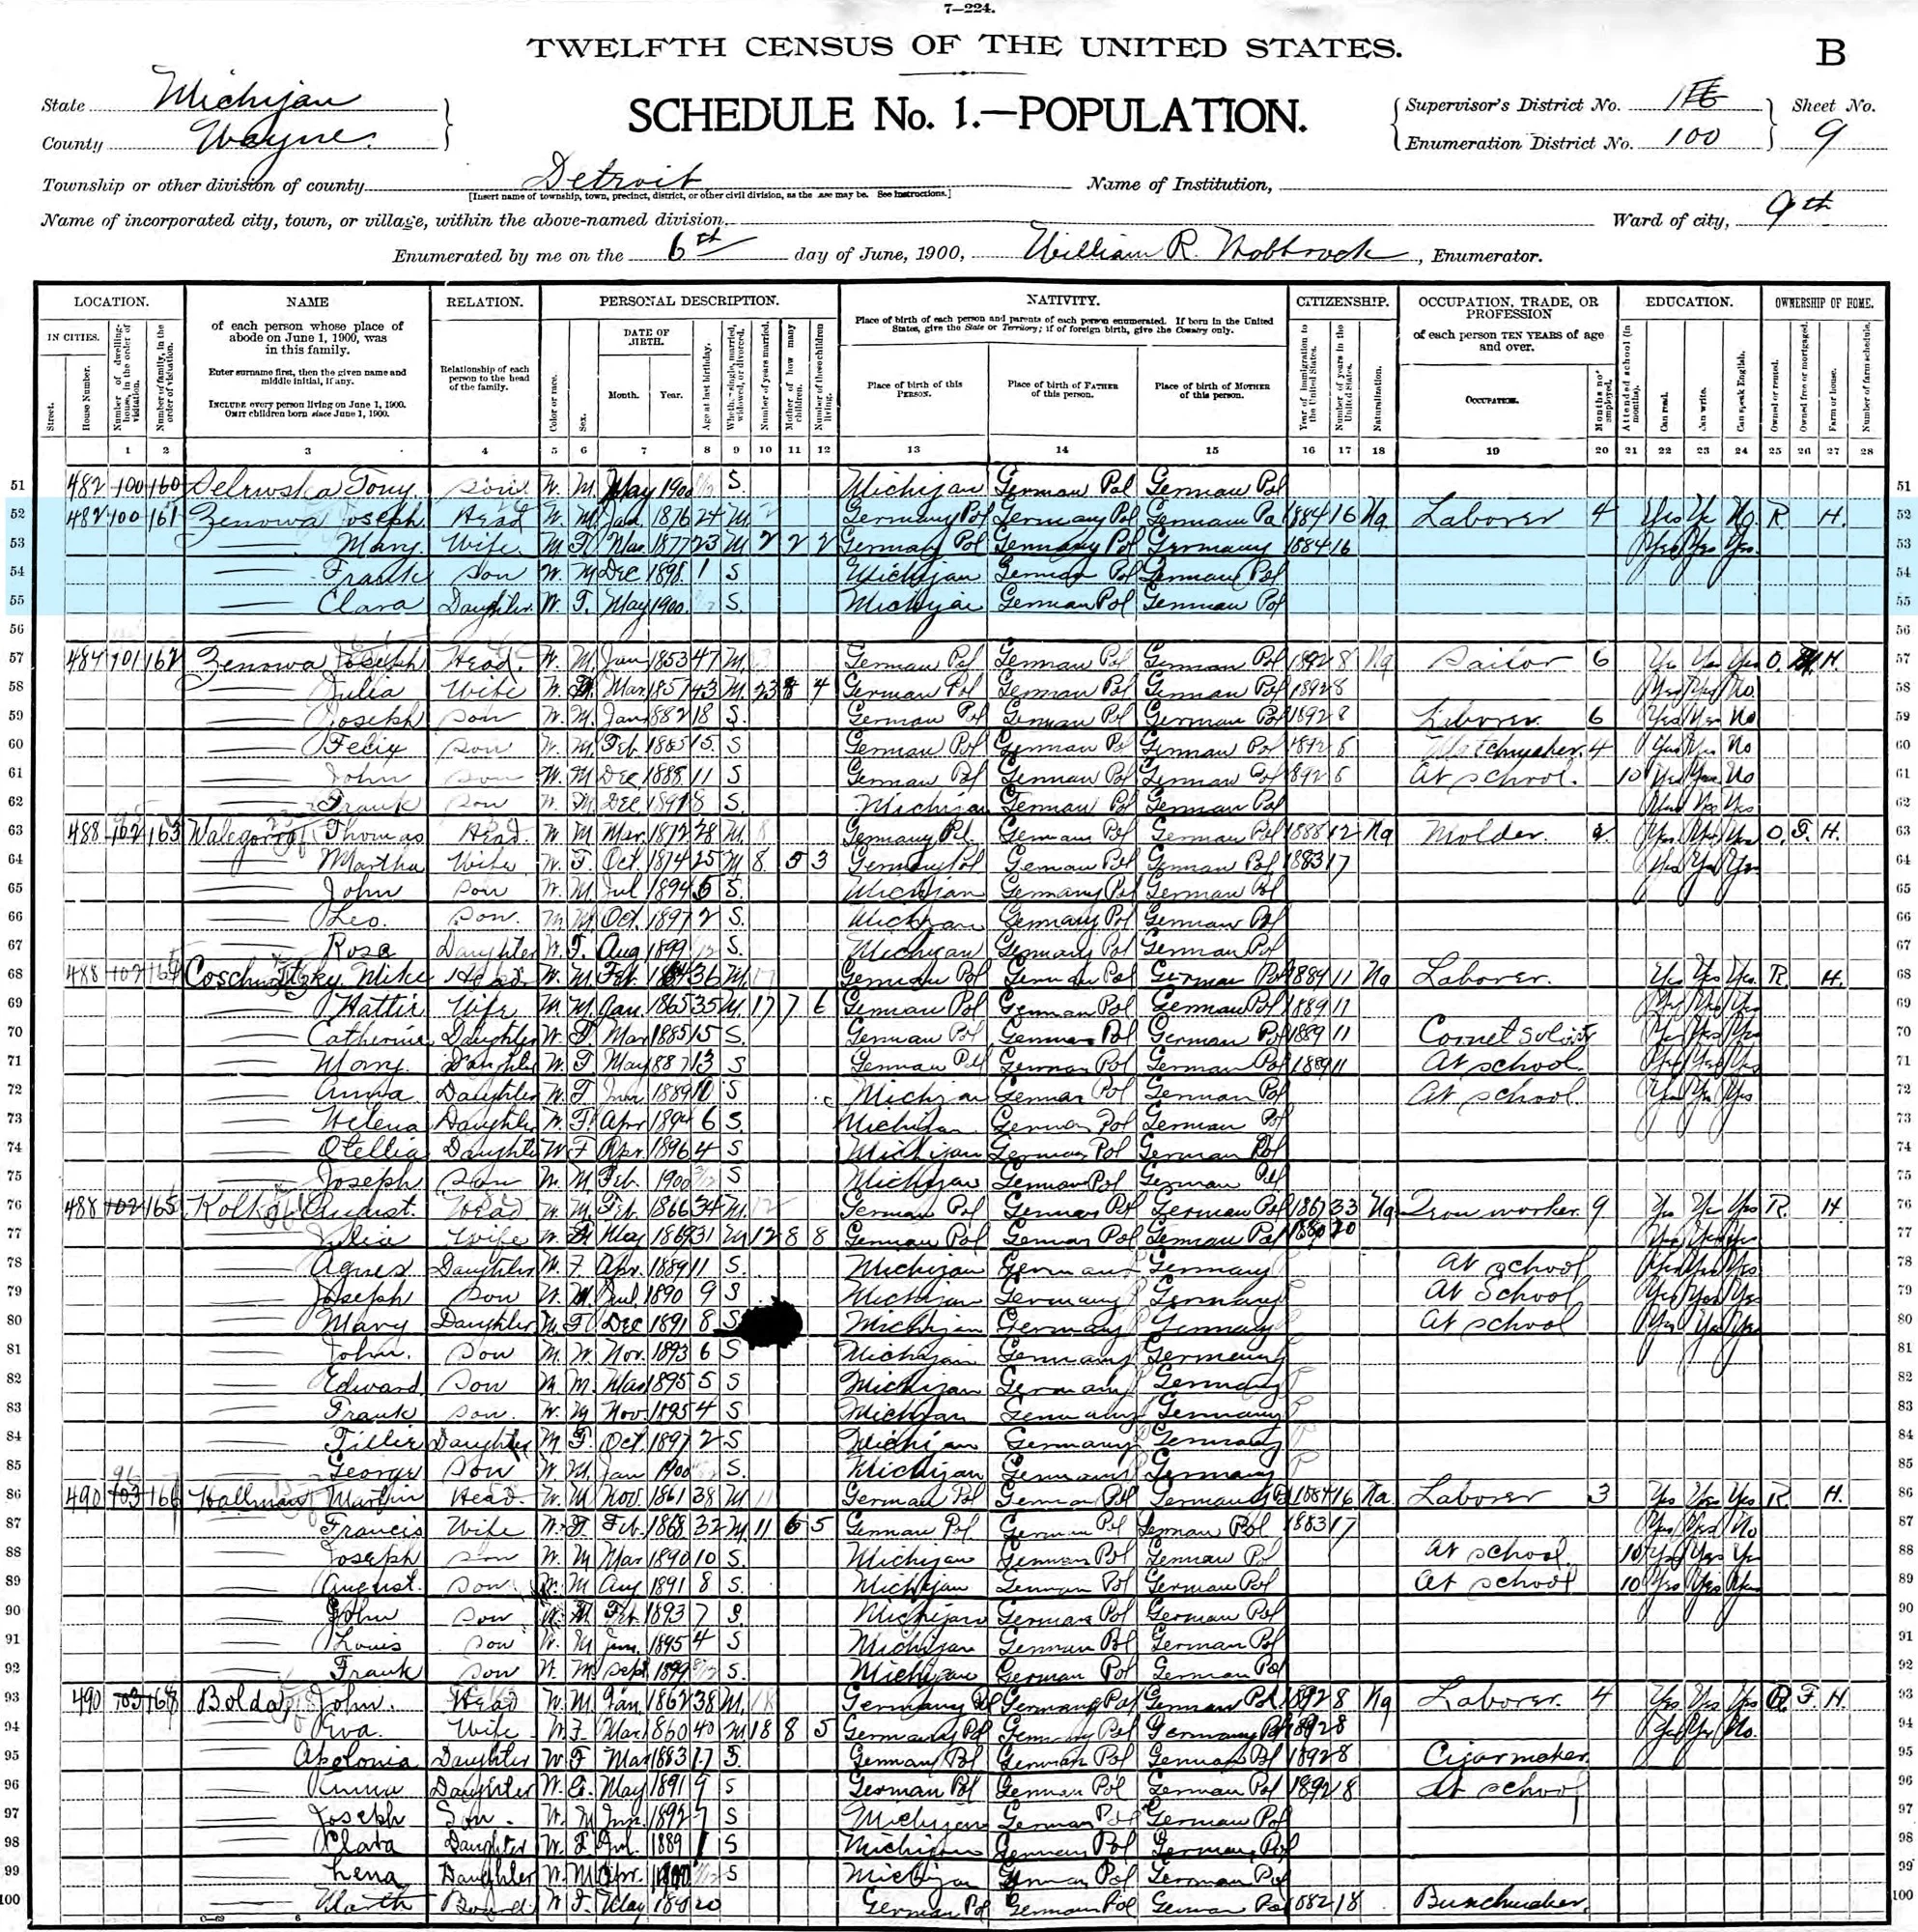 7—224.
TWELFTH CENSUS OF THE UNITED STATES.
B
State Michigan
SCHEDULE No. 1.—POPULATION.
Supervisor's District No. Sheet No.
County Wayne.
Enumeration District No. 100 9
Township or other division of county Detroit Name of Institution,
[Insert name of township, town, precinct, district, or other civil division, as the case may be. See instructions.]
Name of incorporated city, town, or village, within the above-named division. Ward of city, 9th
Enumerated by me on the 6th day of June, 1900, William R. , Enumerator.
LOCATION. NAME RELATION. PERSONAL DESCRIPTION. NATIVITY. CITIZENSHIP. OCCUPATION, TRADE, OR PROFESSION EDUCATION. OWNERSHIP OF HOME.
IN CITIES. Street. House Number. Number of dwelling-house, in the order of visitation. Number of family, in the order of visitation.
of each person whose place of abode on June 1, 1900, was in this family.
Enter surname first, then the given name and middle initial, if any.
INCLUDE every person living on June 1, 1900. OMIT children born since June 1, 1900.
Relationship of each person to the head of the family.
Color or race. Sex. DATE OF BIRTH. Month. Year. Age at last birthday. Whether single, married, widowed, or divorced. Number of years married. Mother of how many children. Number of these children living.
Place of birth of each person and parents of each person enumerated. If born in the United States, give the State or Territory; if of foreign birth, give the Country only.
Place of birth of this PERSON. Place of birth of FATHER of this person. Place of birth of MOTHER of this person.
Year of immigration to the United States. Number of years in the United States. Naturalization.
of each person TEN YEARS of age and over.
OCCUPATION. Months not employed.
Attended school (in months). Can read. Can write. Can speak English.
Owned or rented. Owned free or mortgaged. Farm or house. Number of farm schedule.
1 2 3 4 5 6 7 8 9 10 11 12 13 14 15 16 17 18 19 20 21 22 23 24 25 26 27 28
51 482 100 160 Tony Son W. M. May 1900 S. Michigan German Pol German Pol 51
52 482 100 161 Zenowa Joseph Head W. M. Jan 1876 24 M. Germany Pol Germany Pol German 1884 16 Na Laborer 4 Yes Ye No R H. 52
53 Mary Wife F. Mar 1877 23 M 2 2 2 Germany Pol Germany Pol Germany 1884 16 Yes Yes Yes 53
54 Frank Son W. M Dec 1898 1 S Michigan German Pol German Pol 54
55 Clara Daughter W. F. May 1900 S. Michigan German Pol German Pol 55
56 56
57 484 101 162 Zenowa Joseph Head. W. M. Jan 1853 47 M. German Pol German Pol German Pol 1892 8 Na Sailor 6 Ye Yes Yes O. H. 57
58 Julia Wife W. Mar 1857 43 M. 23 8 4 German Pol German Pol German Pol 1892 8 Yes Yes No. 58
59 Joseph Son W. M. Jan 1882 18 S. German Pol German Pol German Pol 1892 8 Laborer. 6 Yes Yes No 59
60 Felix Son W. M. Feb 1885 15. S German Pol German Pol German Pol 1892 4 Yes Yes No 60
61 John Son W. M Dec 1888 11 S German Pol German Pol German Pol 1892 At school. 10 Yes Yes No 61
62 Frank Son W. M Dec 1891 8 S. Michigan German Pol German Pol Yes Yes Yes 62
63 488 102 163 Thomas Head W. M Mar. 1872 28 M. Germany Pol. German Pol German Pol 1888 12 Na Molder. Yes Yes Yes O. F. H. 63
64 Martha Wife W. F. Oct. 1874 25 M 8. 5 3 Germany Pol German Pol German Pol 1883 17 Yes Yes Yes 64
65 John Son W. M. Jul 1894 5 S. Michigan Germany Pol German Pol 65
66 Leo. Son. M Oct. 1897 2 S. Michigan Germany Pol German Pol 66
67 Rose Daughter W. F. Aug 1899 S. Michigan Germany Pol German Pol 67
68 488 102 164 Mike Head W. M. Feb. 36 M. German Pol German Pol German Pol 1889 11 Na Laborer. Yes Yes Yes. R H. 68
69 Hattie Wife Jan. 1865 35 M. 17 7 6 German Pol German Pol German Pol 1889 11 Yes Yes Yes 69
70 Catherine Daughter W. F. Mar 1885 15 S. German Pol German Pol German Pol 1889 11 Yes Yes Yes 70
71 Mary Daughter W. F May 1887 13 S German Pol German Pol German Pol 1889 11 At school. Yes Yes Yes 71
72 Anna Daughter W. F 1889 S Michigan German Pol German Pol At school. Yes Yes Yes 72
73 Helena Daughter W. F. Apr 1894 6 S. Michigan German Pol German Pol 73
74 Otellia Daughter W. F Apr. 1896 4 S Michigan German Pol German Pol 74
75 Joseph Son M Feb. 1900 S Michigan German Pol German Pol 75
76 488 102 165 August. Head M. Feb. 1866 34 M. 12 German Pol German Pol German Pol 1867 33 Na Iron worker. 9 Yes Yes Yes R. H 76
77 Julia Wife W. May 1869 31 M 12 8 8 German Pol German Pol German Pol 1880 20 Yes Yes Yes 77
78 Agnes Daughter W. F Apr. 1889 11 S. Michigan German Germany At school Yes Yes Yes 78
79 Joseph Son W. M. Jul. 1890 9 S Michigan Germany Germany At School Yes Yes Yes 79
80 Mary Daughter F. Dec 1891 8 S Michigan Germany Germany At school Yes Yes Yes 80
81 John. Son Nov. 1893 6 S Michigan Germany Germany 81
82 Edward Son M. Mar 1895 5 S Michigan Germany Germany 82
83 Frank Son. W. M Nov. 1895 4 S Michigan Germany Germany 83
84 Tillie Daughter F. Oct. 1897 2 S Michigan Germany Germany 84
85 George Son W. M. Jan 1900 S. Michigan Germany Germany 85
86 490 103 166 Hallman Martin Head W. M Nov. 1861 38 M German Pol German Pol 1884 16 Na Laborer 3 Yes Yes Yes R H. 86
87 Francis Wife W. F. Feb. 1868 32 M. 11 6 5 German Pol German Pol German Pol 1883 17 Yes Yes No 87
88 Joseph Son W. M Mar 1890 10 S. Michigan German Pol German Pol At school. 10 Yes Yes Ye 88
89 August. Son M Aug 1891 8 S. Michigan German Pol German Pol At school 10 Yes Yes Yes 89
90 John Son W. Feb. 1893 7 S. Michigan German Pol German Pol 90
91 Louis Son W. M Jun. 1895 4 S Michigan German Pol German Pol 91
92 Frank Son W. M Sept. 1899 S. Michigan German Pol German Pol 92
93 490 103 Bolda John. Head W. M. Jan. 1862 38 M. 18 Germany Pol Germany Pol German Pol. 1892 8 Na Laborer. 4 Yes Yes Yes F. H. 93
94 Eva. Wife W. F. Mar. 1860 40 M. 18 8 5 Germany Pol Germany Pol Germany Pol 1892 8 Yes Yes No. 94
95 Apolonia Daughter W. F Mar 1883 17 S. Germany Pol German Pol German Pol 1892 8 Cigar maker. 95
96 Anna Daughter W. May 1891 9 S German Pol German Pol German Pol 1892 8 At school 96
97 Joseph Son. W. M Jun. 1892 7 S Michigan German Pol German Pol 97
98 Clara Daughter W. F Jul. 1889 1 S Michigan German Pol German Pol 98
99 Lena Daughter W. M Apr. S Michigan German Pol German Pol 99
100 W F. May 20 German Pol German Pol German 1882 18 Bunchmaker. 100